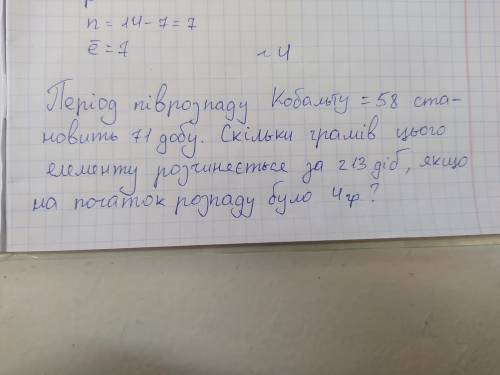 n = 14 - 7 = 7
ē = 7
~ 4
Період піврозпаду Кобальту = 58 ста-
новить 71 добу. Скільки грамів цього
елементу розчиняється за 213 діб, якщо
на початок розпаду було 4 гр?